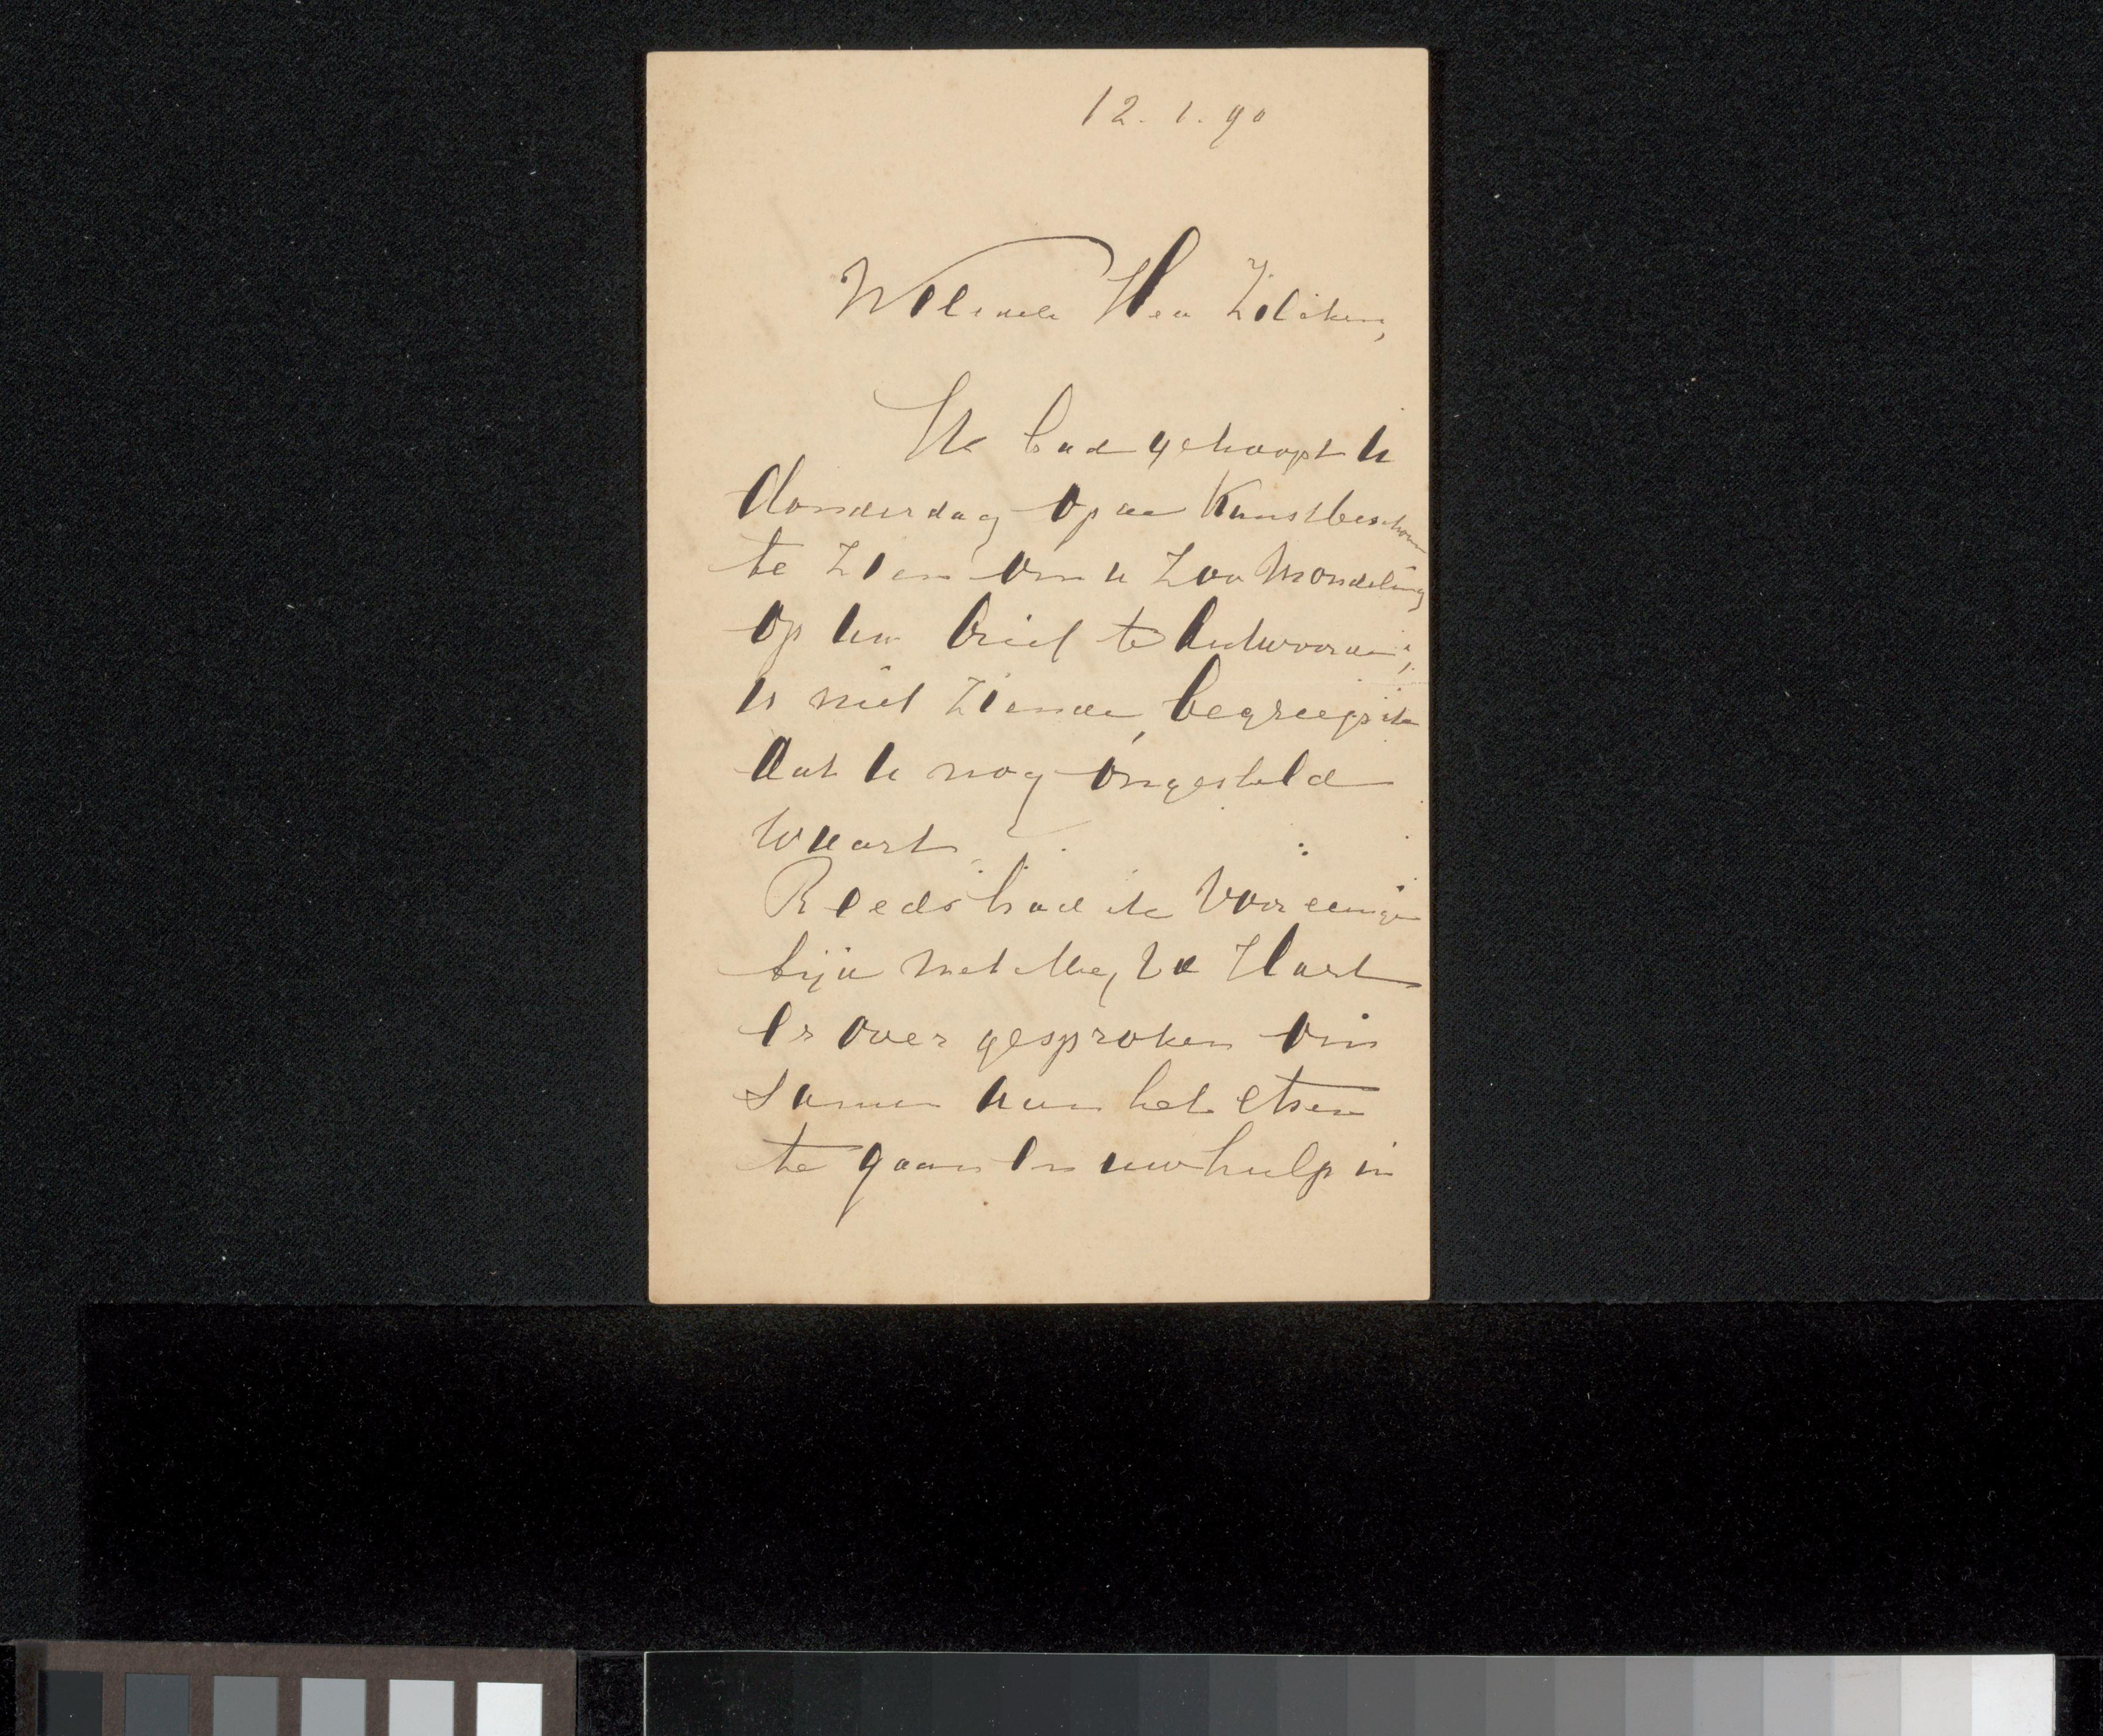 12. 1. 90
WelEdele Heer Zilcken,
Ik had gehoopt u
donderdag op de Kunstbeschouw
te zien om u zoo mondeling
op uw brief te antwoorden;
u niet ziende, begreep ik
dat u nog ongesteld
waart.
Reeds had ik voor eenigen
tijd met Mej, v.d Hart
er over gesproken om
samen aan het etsen
te gaan en uw hulp in